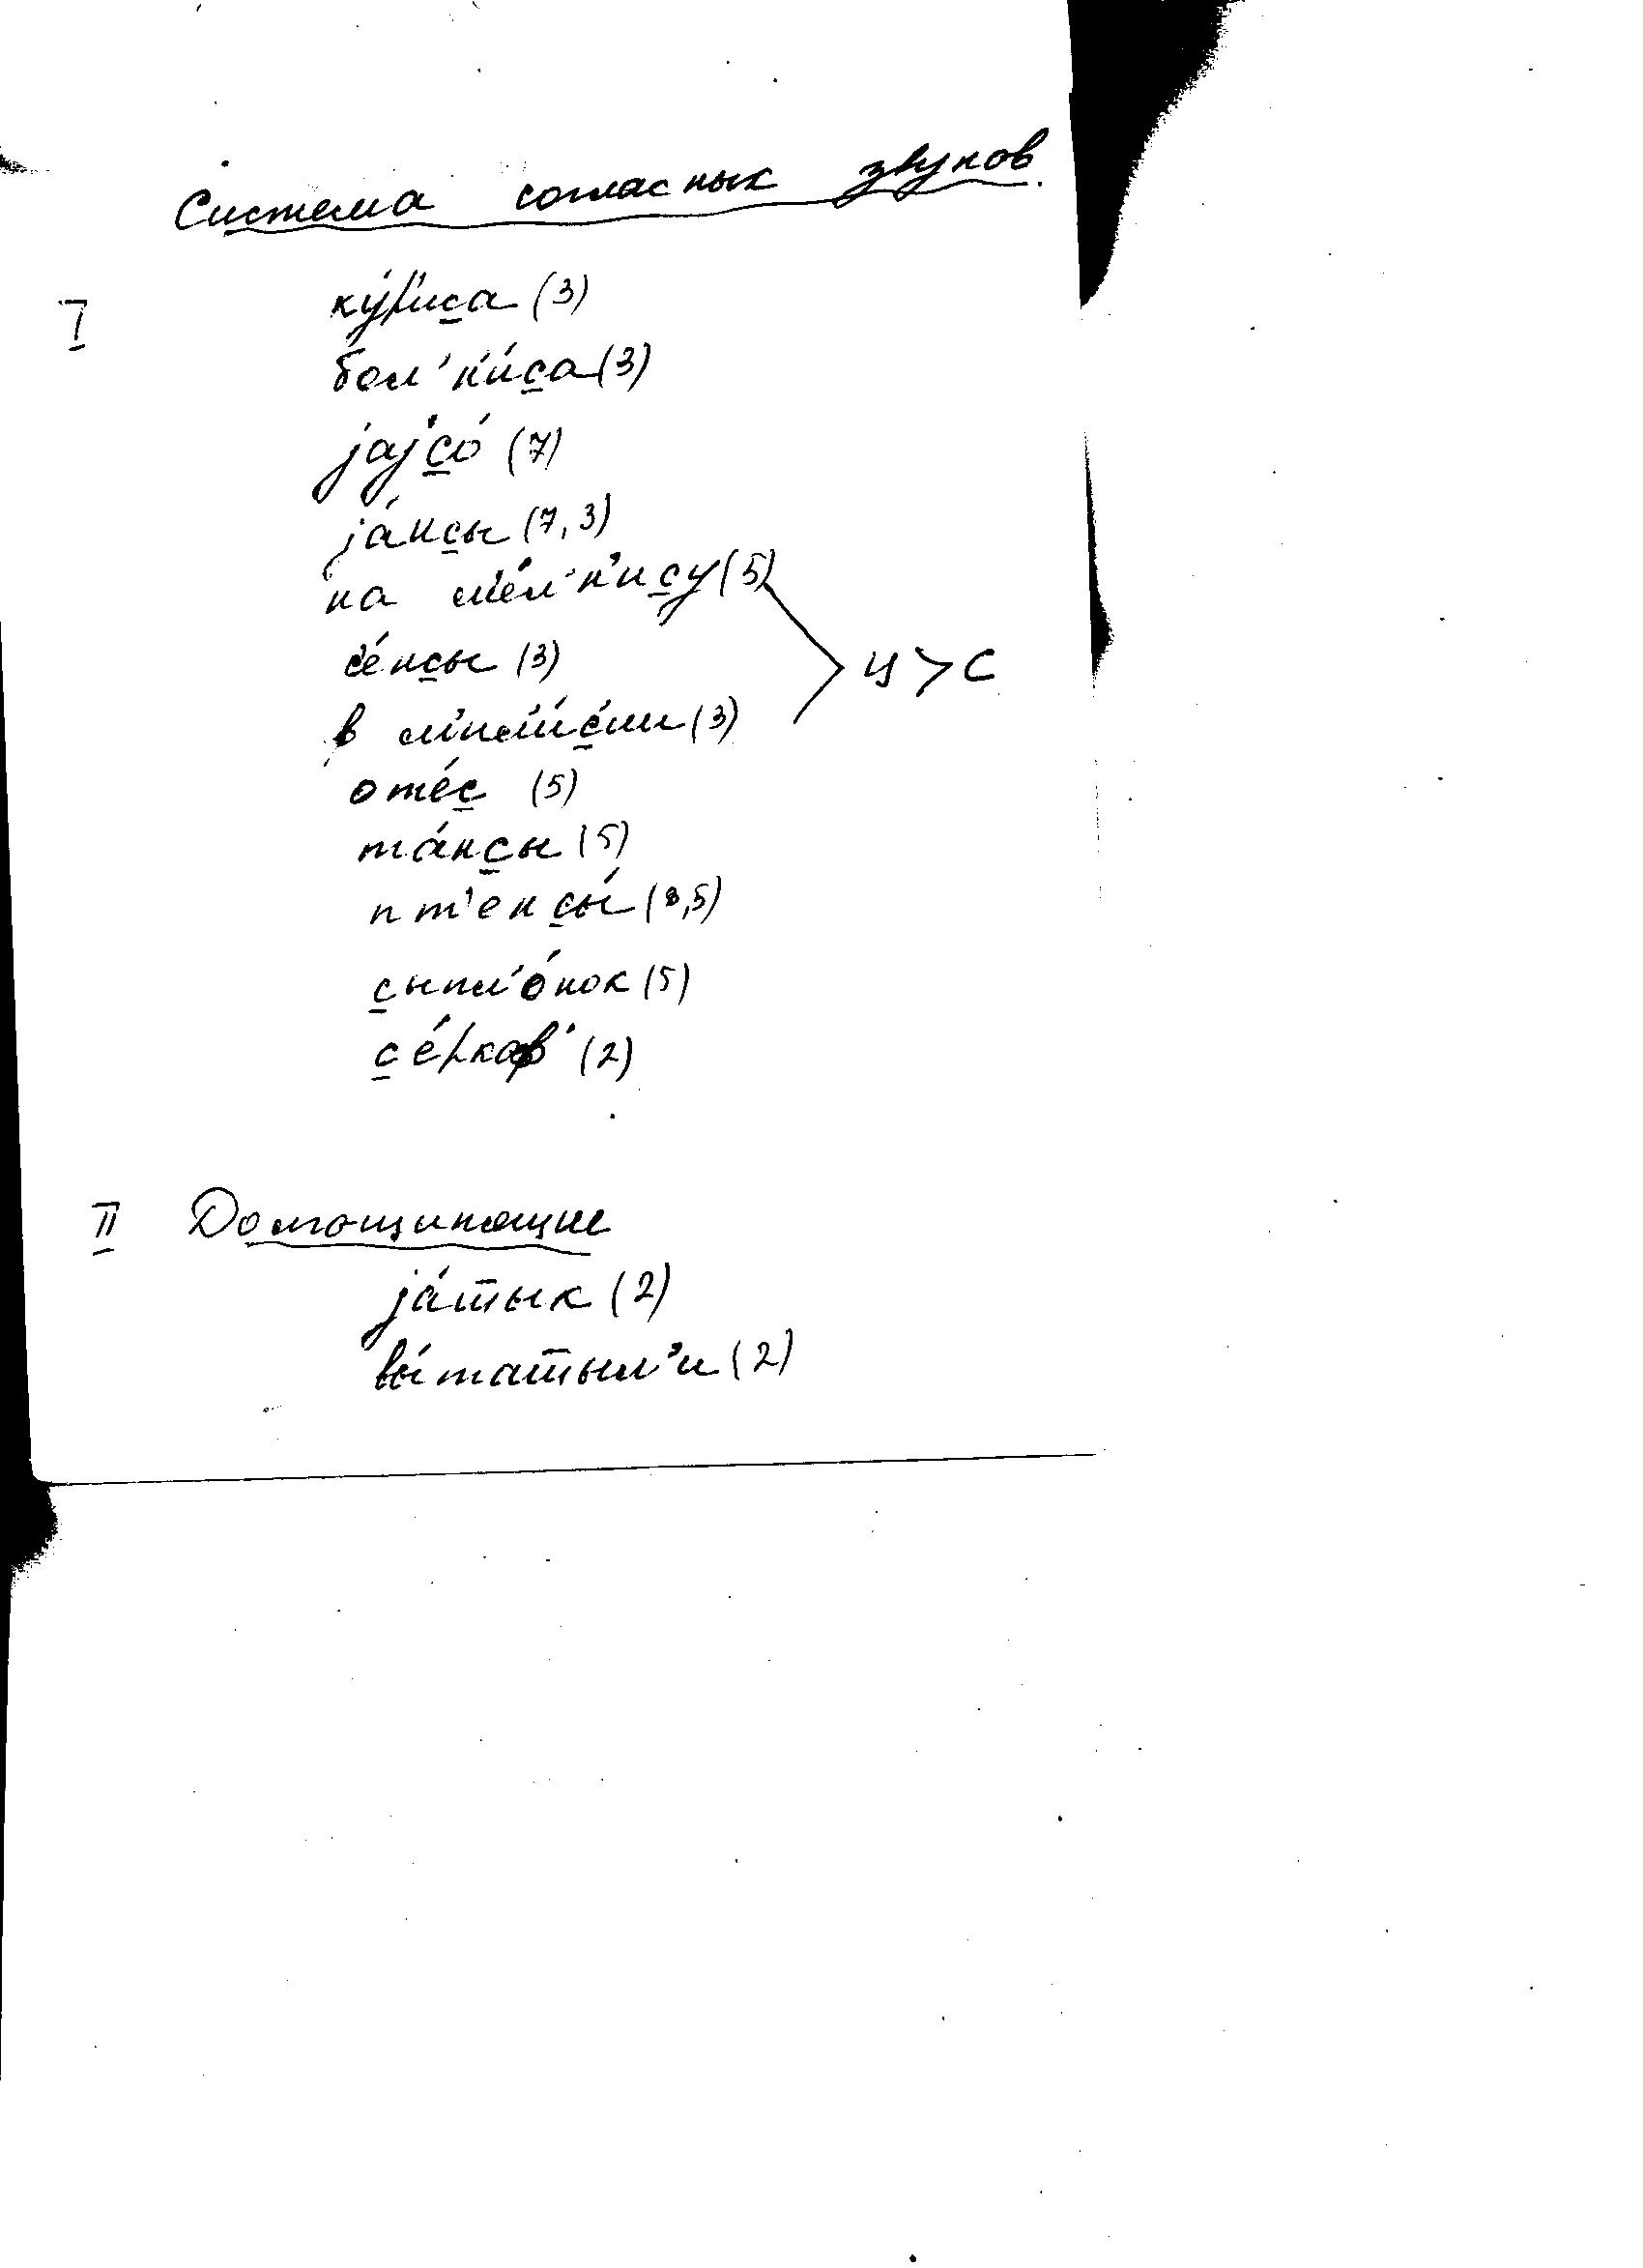 Система согласных звуков.
I
ку́р'иса (3)
бол'н'и́са (3)
jajсо́ (7)
jа́йсы (7,3)
на м'е́л'н'ису (5)
с'е́нсы (3)
ц > с
в м'ил'и́с'ии (3)
оте́с (5)
та́нсы (5)
пт'енсы́ (3,5)
сыпл'о́нок (5)
се́ркав' (2)
II Долгощипящие
jа́ш̄ык (2)
вы́таш̄ыл'и (2)